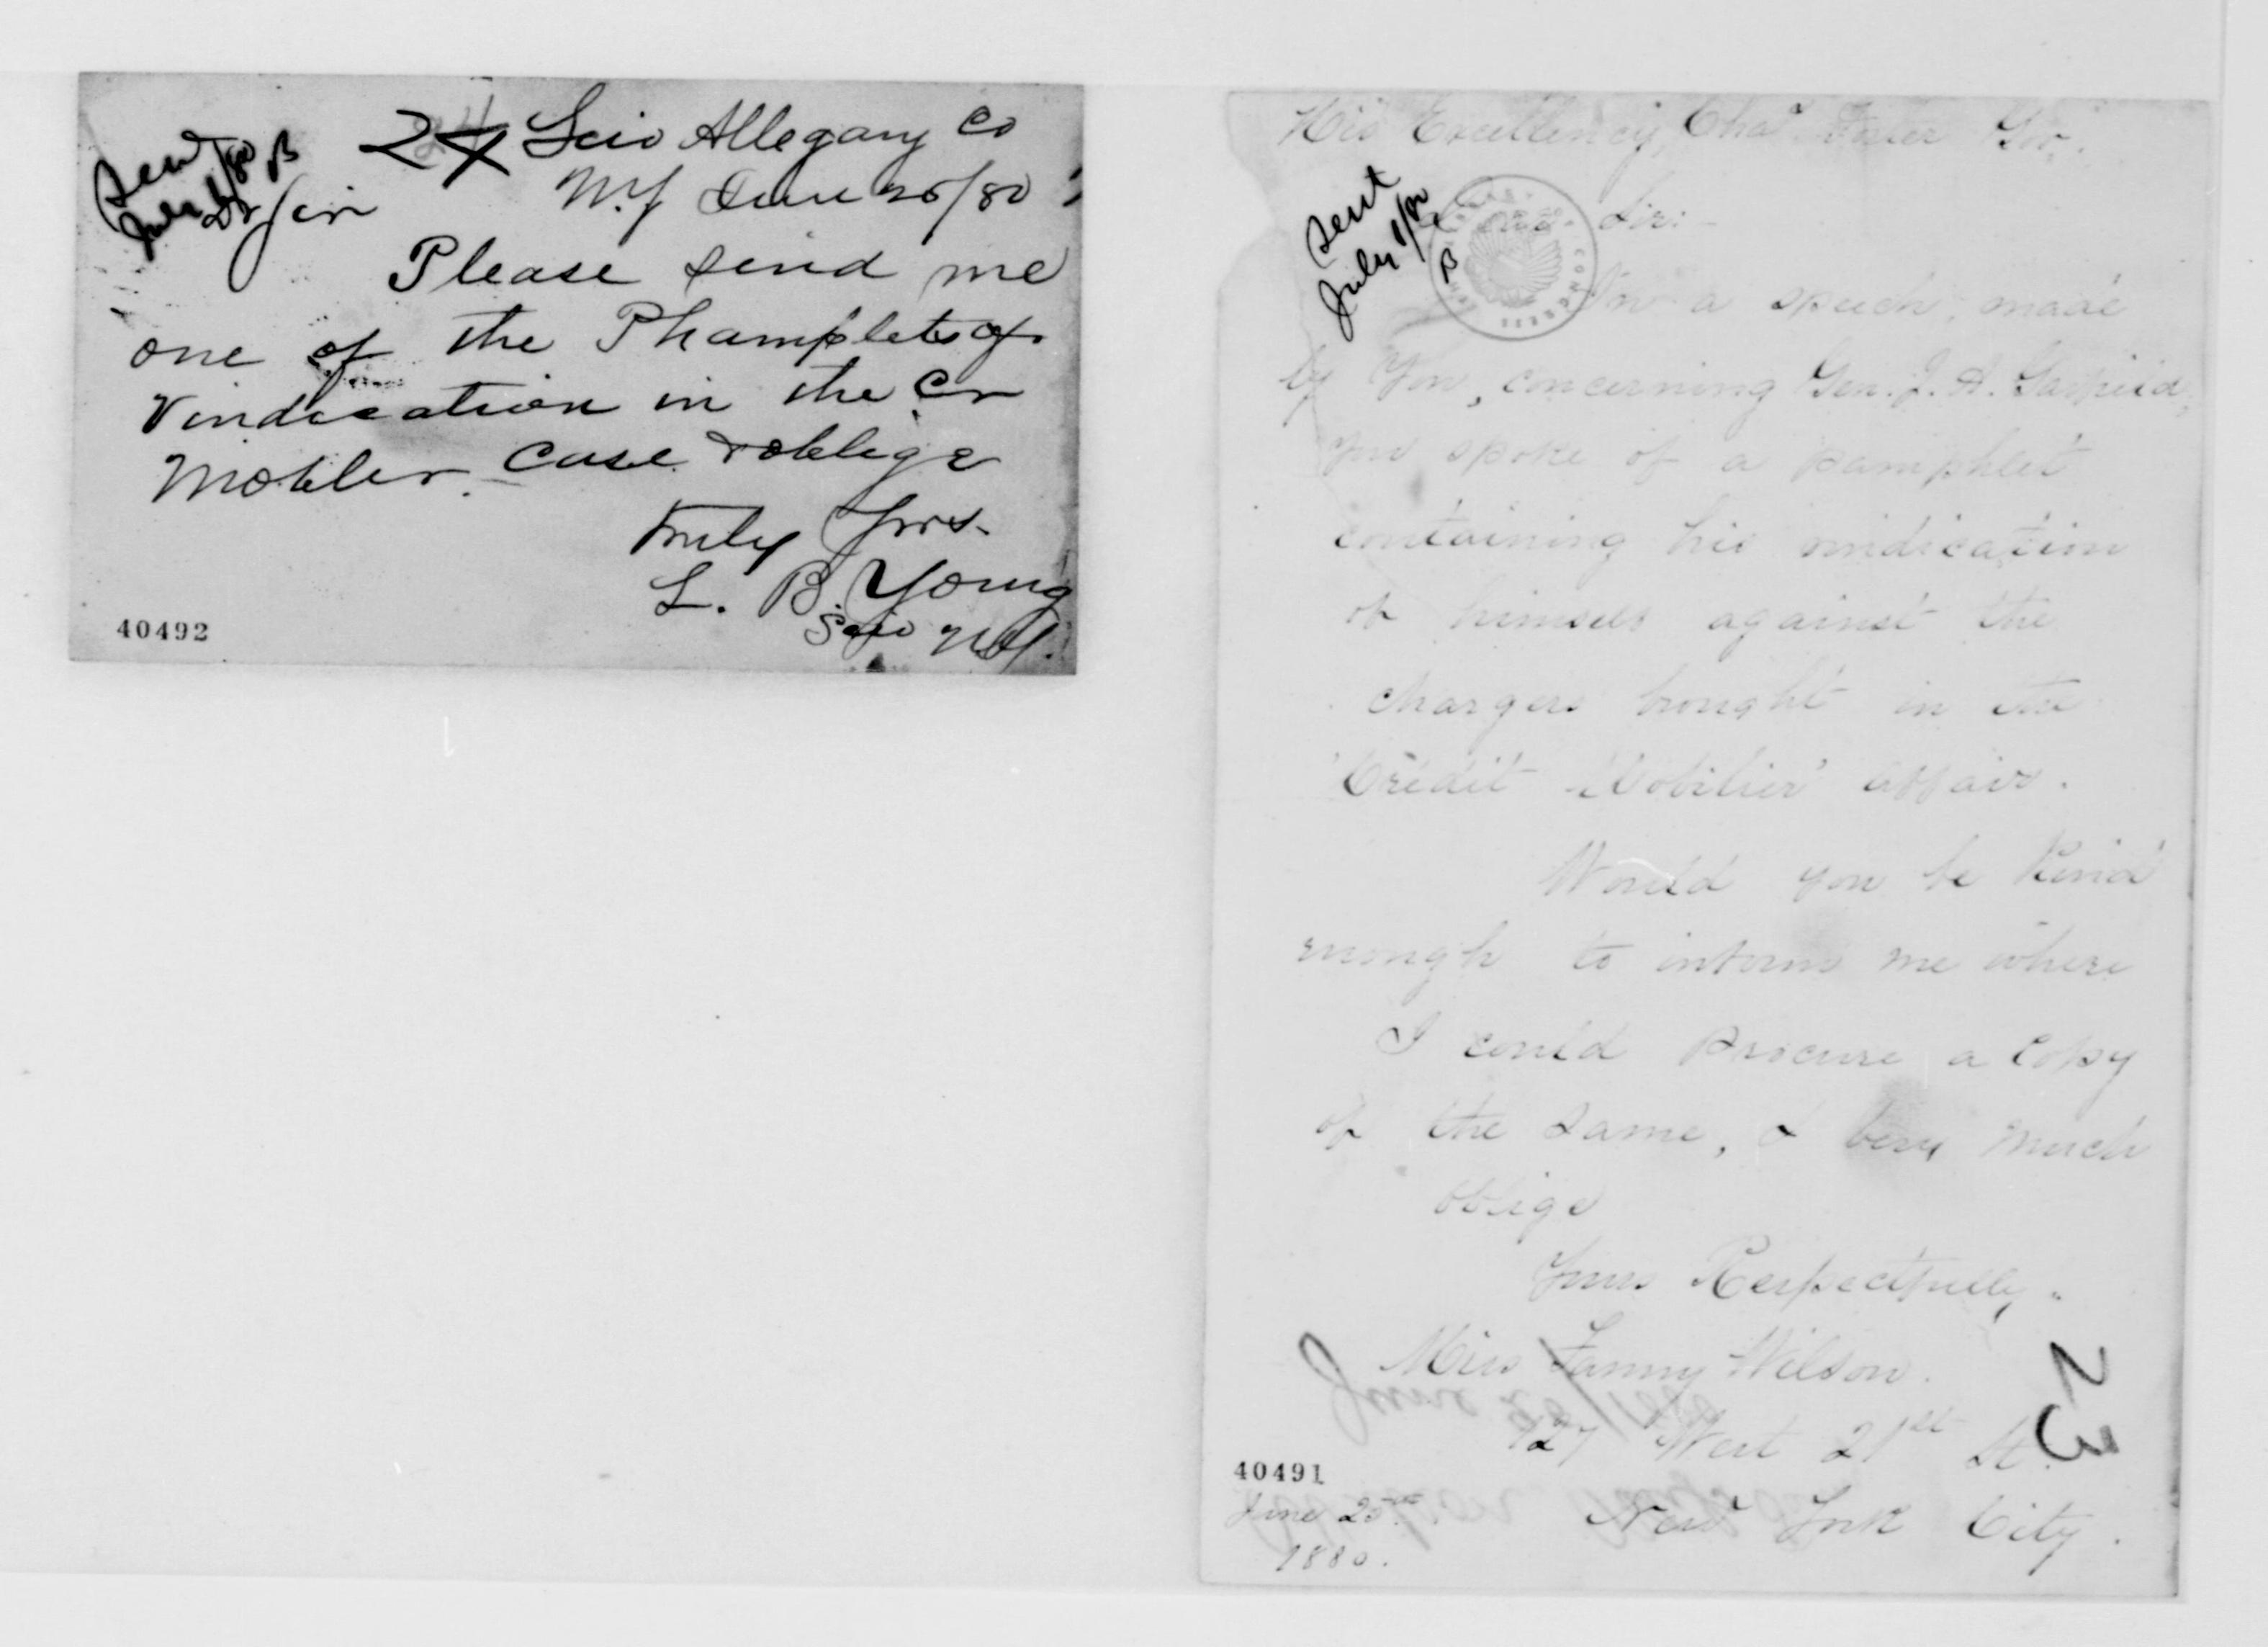 Sent
July 1/80
B
24 Scio Allegany Co
N.Y June 25/80
Dr Sir
Please send me
one of the Phamplets of
Vindication in the Cr
Mobler case & oblige
Truly Yrs.
L. B. Young
Scio N.Y.
40492
His Excellency, Chas. Foster Gov.
Sent
July 1/80
B
Dear Sir:-
In a speech, made
by You, concerning Gen. J. A. Garfield,
you spoke of a pamphlet
containing his vindication
of himself against the
charges brought in the
'Crédit Mobilier' affair.
Would you be kind
enough to inform me where
I could procure a copy
of the same, & very much
oblige
Yours Respectfully,
Miss Fanny Wilson.
127 West 21st St.
23
New York City.
40491
June 25th
1880.